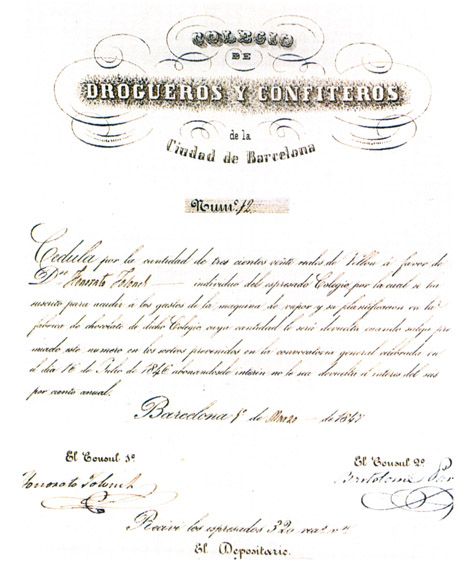 COLEGIO
DE
DROGUEROS Y CONFITEROS
de la
Ciudad de Barcelona
Num.º 12
Cedula por la cantidad de tres cientos veinte reales de Vellon á favor de
D.n Honorato individuo del espresado Colegio, por la cual se ha
suscrito para acudir á los gastos de la maquina de vapor y su planificacion en la
fabrica de chocolate de dicho Colegio cuya cantidad le será devuelta cuando salga pre
miado este numero en los sorteos prevenidos en la convocatoria general celebrada en
el dia 16 de Julio de 1846 abonandosele interin no le sea devuelta el interes del seis
por ciento anual.
Barcelona 1º de Marzo de 1847
El Consul 1º El Consul 2º
Honorato Bartolomé
Recivi los espresados 320 rea.s v.n
El Depositario.